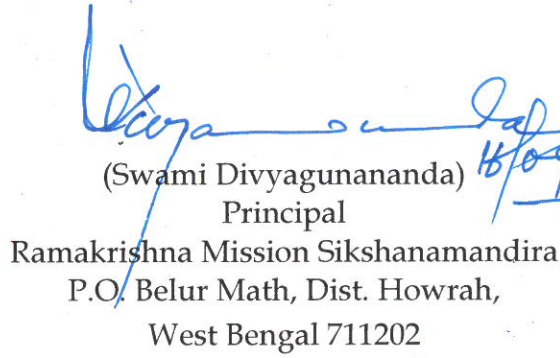 (Swami Divyagunananda)
Principal
Ramakrishna Mission Sikshanamandira
P.O. Belur Math, Dist. Howrah,
West Bengal 711202